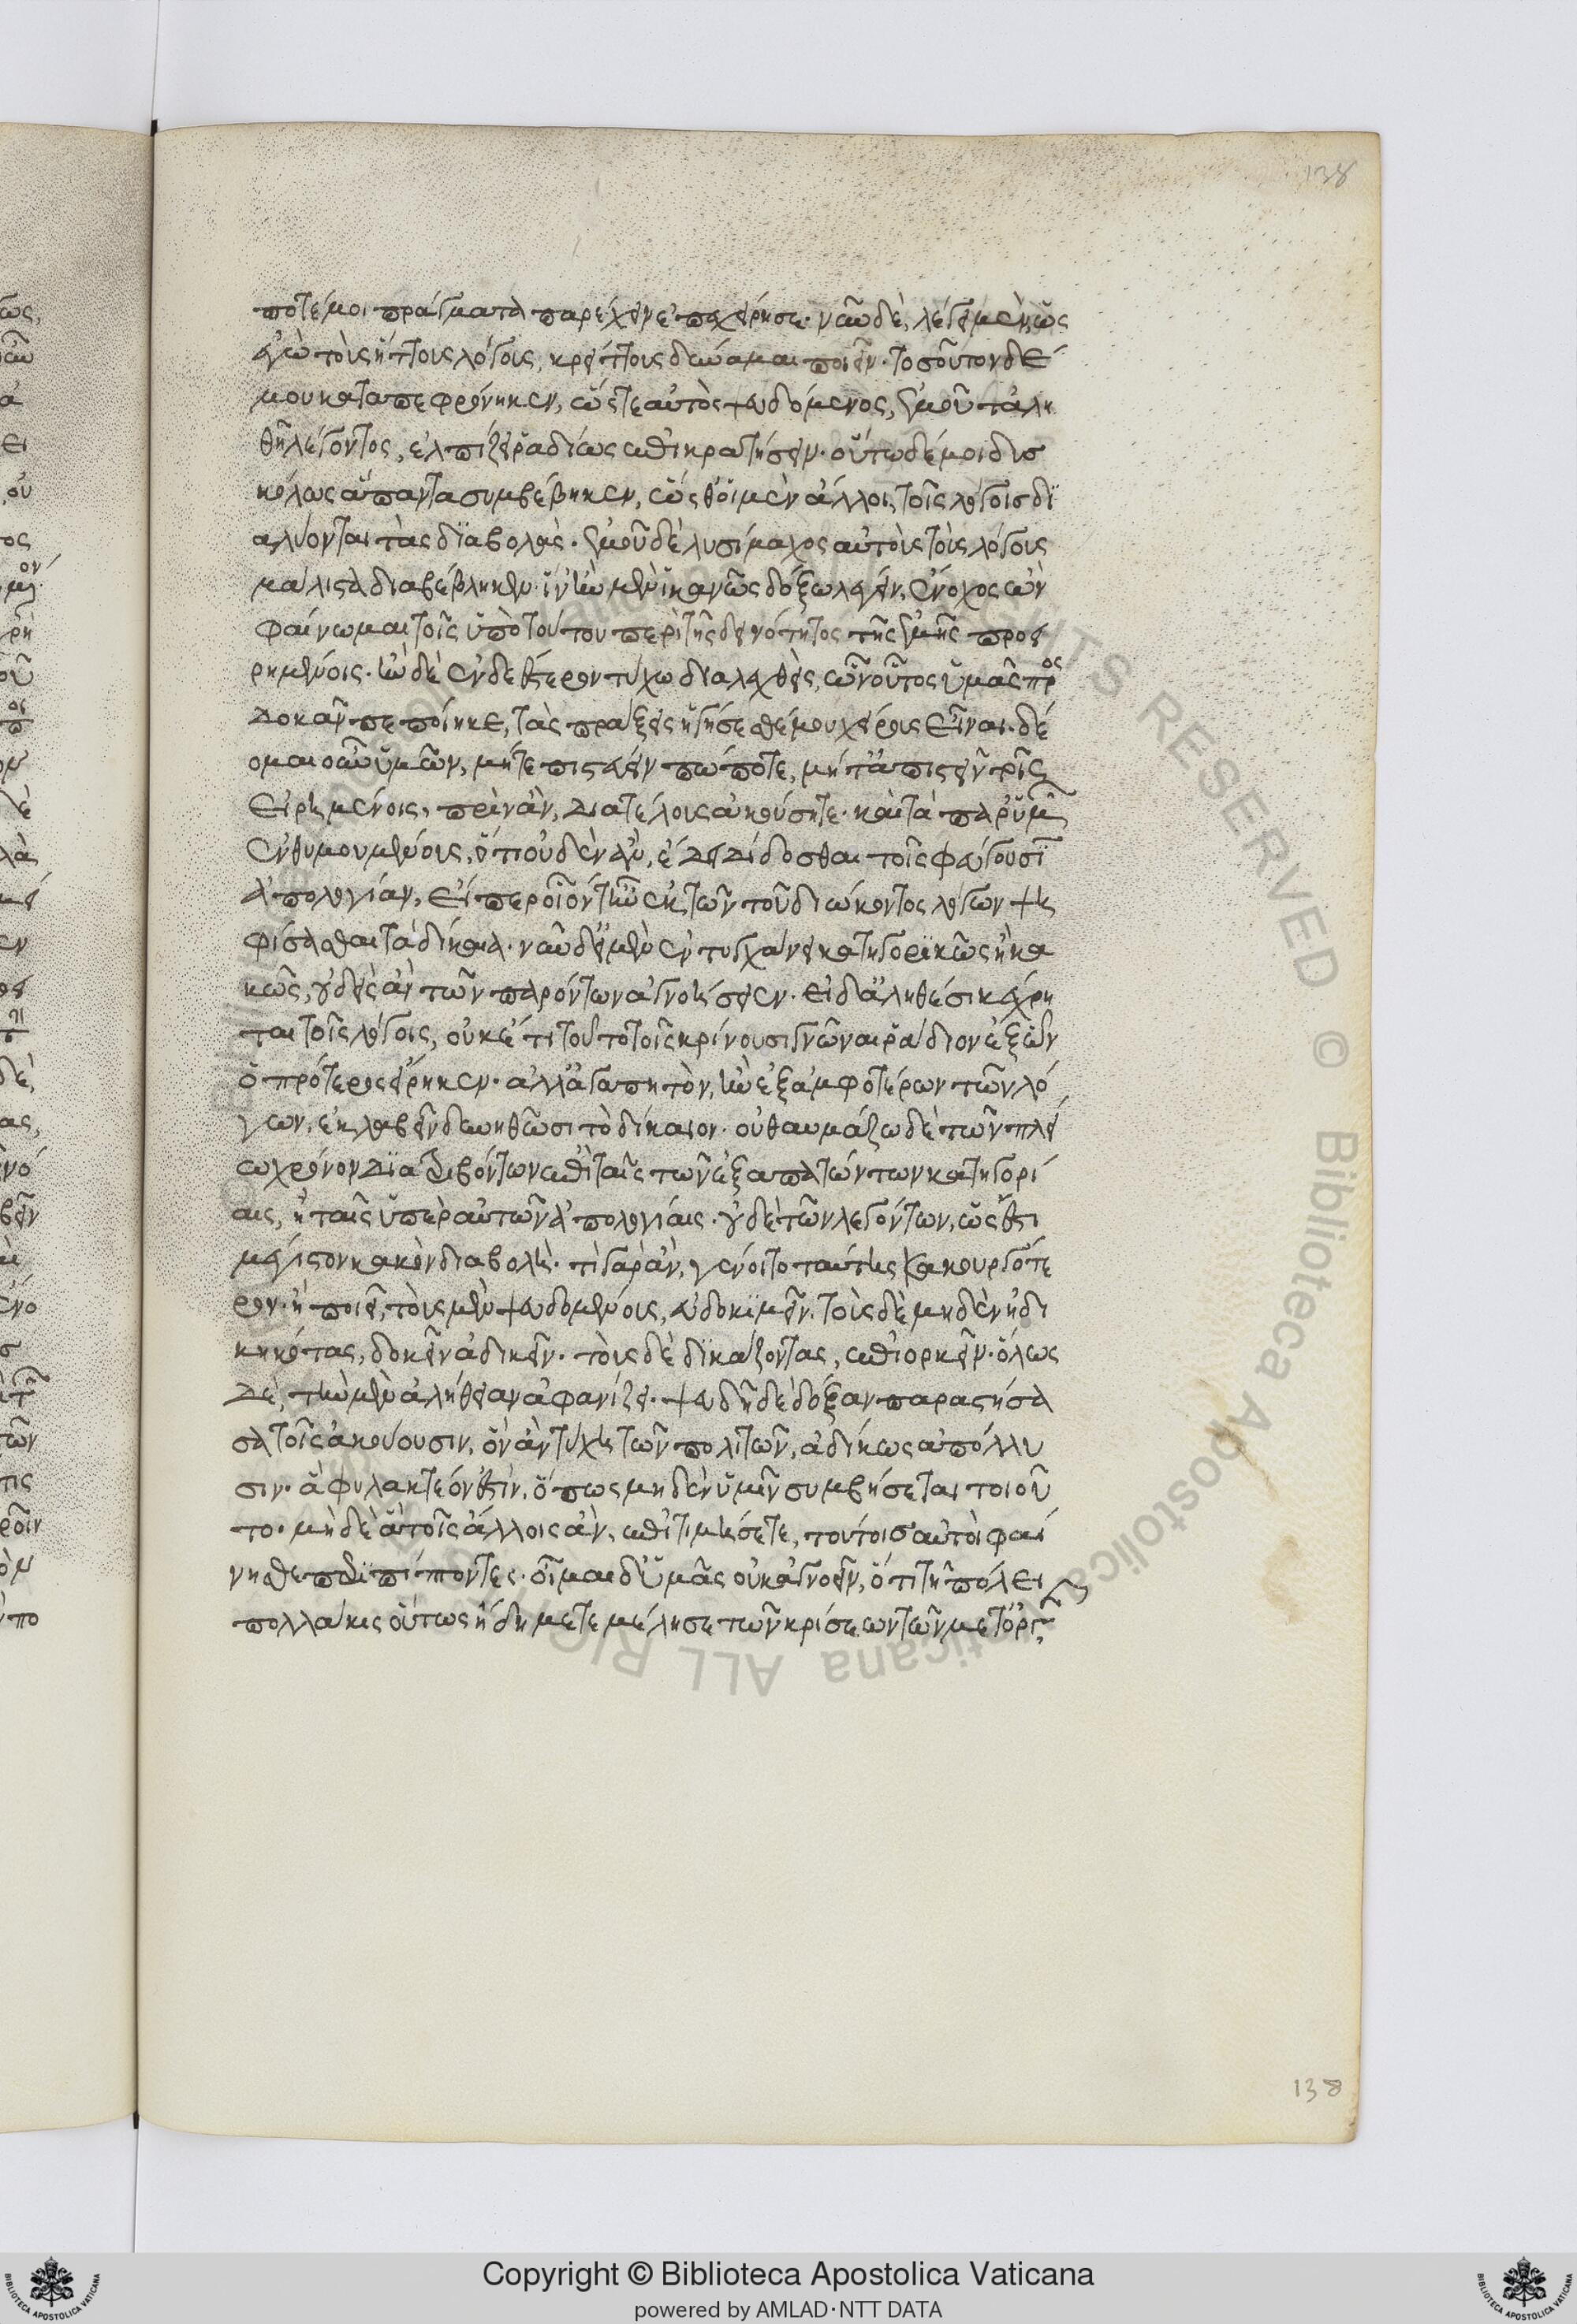 ποτέ μοι πράγματα παρέχειν ἐπεχείρησε· νῦν δὲ, λέγει μὲν ὡς
ἐγὼ τοὺς ἥττους λόγους, κρείττους δύναμαι ποιεῖν· τοσοῦτον δέ
μου καταπεφρόνηκεν, ὥστε αὐτὸς ψευδόμενος, ἐμοῦ τἀλη
θῆ λέγοντος, ἐλπίζει ῥαδίως ἐπικρατήσειν· οὕτω δέ μοι δυσ
κόλως ἅπαντα συμβέβηκεν, ὥσθ' οἱ μὲν ἄλλοι τοῖς λόγοις δι
αλύονται τὰς διαβολάς· ἐμοῦ δὲ λυσίμαχος αὐτοὺς τοὺς λόγους
μάλιστα διαβέβληκεν· ἵν' ἢν μὲν ἱκανῶς δόξω λέγειν, ἔνοχος ὢν
φαίνωμαι τοῖς ὑπὸ τούτου περὶ τῆς δεινότητος τῆς ἐμῆς προει
ρημένοις· ἢν δὲ ἐνδεέστερον τύχω διαλεχθεὶς, ὧν οὗτος ὑμᾶς προς
δοκᾶν πεποίηκε, τὰς πράξεις ἡγήσεσθέ μου χείρους εἶναι. δέ
ομαι οὖν ὑμῶν, μήτε πιστεύειν πώποτε, μήτ' ἀπιστεῖν τοῖς
εἰρημένοις, πρὶν ἂν, διὰ τέλους ἀκούσητε· καὶ τὰ παρ' ὑμῖν
ἐνθυμουμένους, ὅτι οὐδὲν ἂν, ἔδει δίδοσθαι τοῖς φεύγουσιν
ἀπολογίαν, εἴπερ οἷόν τ' ἦν ἐκ τῶν τοῦ διώκοντος λόγων ψη
φίσασθαι τὰ δίκαια· νῦν δ' εἰ μὲν ἐντυγχάνει κατηγορικῶς ἢ κα
κῶς, οὐδεὶς ἂν τῶν παρόντων ἀγνοήσειεν· εἰ δ' ἀληθέσι κέχρη
ται τοῖς λόγοις, οὐκέτι τοῦτο τοῖς κρίνουσι γνῶναι ῥάδιον ἐξ ὧν
ὁ πρότερος εἴρηκεν· ἀλλ' ἀγαπητὸν, ἢν ἐξ ἀμφοτέρων τῶν λό
γων, ἐκλαβεῖν δυνηθῶσι τὸ δίκαιον· οὐ θαυμάζω δὲ τῶν πλεί
ω χρόνον διατριβόντων ἐπὶ ταῖς τῶν ἐξαπατώντων κατηγορί
αις, ἢ ταῖς ὑπὲρ αὑτῶν ἀπολογίαις· οὐδὲ τῶν λεγόντων, ὡς ἔστι
μέγιστον κακὸν διαβολή· τί γὰρ ἂν, γένοιτο ταύτης κακουργότε
ρον· ἣ ποιεῖ, τοὺς μὲν ψευδομένους, εὐδοκιμεῖν. τοὺς δὲ μηδὲν ἠδι
κηκότας, δοκεῖν ἀδικεῖν· τοὺς δὲ δικάζοντας, ἐπιορκεῖν· ὅλως
δὲ, τὴν μὲν ἀλήθειαν ἀφανίζει· ψευδῆ δὲ δόξαν παραστήσα
σα τοῖς ἀκούουσιν, ὃν ἂν τύχῃ τῶν πολιτῶν, ἀδίκως ἀπόλλυ
σιν· ἃ φυλακτέον ἐστὶν, ὅπως μηδὲν ὑμῖν συμβήσεται τοιοῦ
το· μὴ δὲ ἃ τοῖς ἄλλοις ἂν, ἐπιτιμήσετε, τούτοις αὐτοὶ φαί
νησθε περιπίπτοντες· οἶμαι δ' ὑμᾶς οὐκ ἀγνοεῖν, ὅτι τῇ πόλει
πολλάκις οὕτως ἤδη μετεμέλησε τῶν κρίσεων τῶν μετ' ὀργῆς
138
138
Copyright © Biblioteca Apostolica Vaticana
powered by AMLAD·NTT DATA